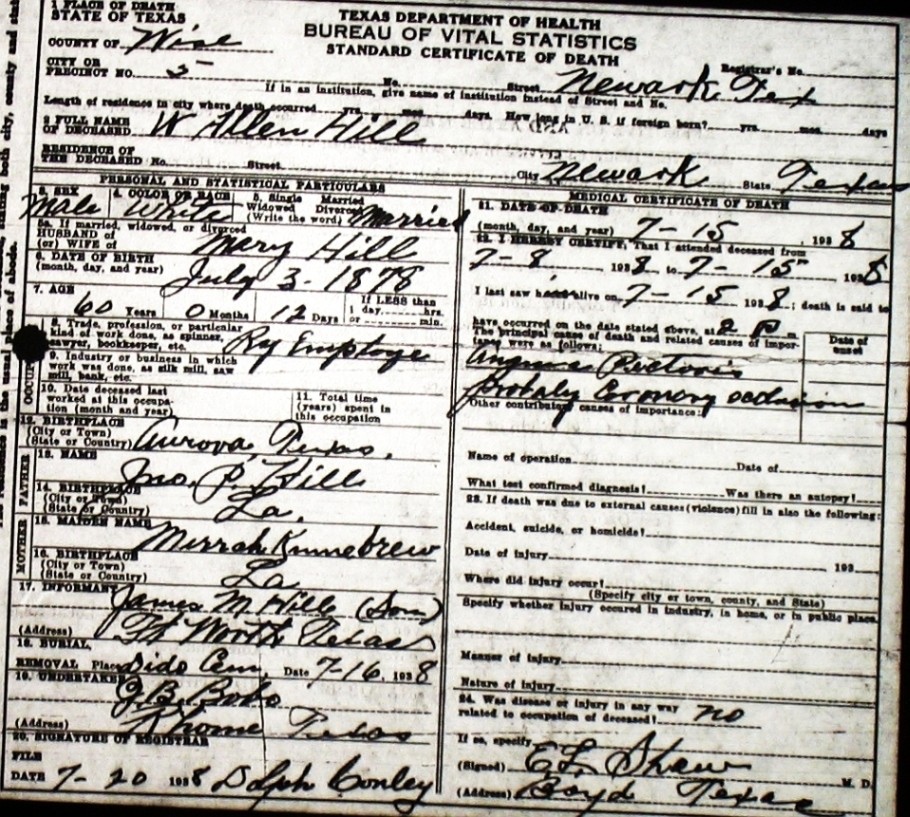 1 PLACE OF DEATH
STATE OF TEXAS
TEXAS DEPARTMENT OF HEALTH
BUREAU OF VITAL STATISTICS
STANDARD CERTIFICATE OF DEATH
COUNTY OF Wise
Registrar's No.
CITY OR
PRECINCT NO. 5
No. Street Newark, Tex
If in an institution, give name of institution instead of Street and No.
Length of residence in city where death occurred yrs. mos. days. How long in U. S. if foreign born? yrs. mos. days
2 FULL NAME
OF DECEASED W Allen Hill
RESIDENCE OF
THE DECEASED No. Street City Newark State Texas
PERSONAL AND STATISTICAL PARTICULARS
3. SEX 4. COLOR OR RACE 5. Single Married
Widowed Divorced
(Write the word)
Male White Married
5a. If married, widowed, or divorced
HUSBAND OF
(or) WIFE OF Mary Hill
6. DATE OF BIRTH
(month, day, and year) July 3-1878
7. AGE
60 Years 0 Months 12 Days
If LESS than
1 day, hrs.
or min.
8. Trade, profession, or particular
kind of work done, as spinner,
sawyer, bookkeeper, etc. Ry Employe
9. Industry or business in which
work was done, as silk mill, saw
mill, bank, etc.
10. Date deceased last
worked at this occupa-
tion (month and year)
11. Total time
(years) spent in
this occupation
12. BIRTHPLACE
(City or Town)
(State or Country) Aurora, Texas.
FATHER
13. NAME Jno. P. Hill
14. BIRTHPLACE
(City or Town)
(State or Country) La.
MOTHER
15. MAIDEN NAME Mirrah Kinnebrew
16. BIRTHPLACE
(City or Town)
(State or Country) La
17. INFORMANT James M Hill (Son)
(Address) Ft Worth Texas
18. BURIAL,
REMOVAL Place Dido Cem Date 7-16, 1938
19. UNDERTAKER J. B. Bobo
(Address) Rhome Texas
20. SIGNATURE OF REGISTRAR
FILE
DATE 7-20 1938 Dolph Conley
MEDICAL CERTIFICATE OF DEATH
21. DATE OF DEATH
(month, day, and year) 7-15, 1938
22. I HEREBY CERTIFY, That I attended deceased from
7-8, 1938, to 7-15 1938
I last saw h alive on 7-15 1938; death is said to
have occurred on the date stated above, at 2 P m
The principal cause of death and related causes of impor-
tance were as follows:
Date of
onset
Angina Pectoris
Probaly Coronary occlusion
Other contributory causes of importance:
Name of operation Date of
What test confirmed diagnosis? Was there an autopsy?
23. If death was due to external causes (violence) fill in also the following:
Accident, suicide, or homicide?
Date of injury 193
Where did injury occur?
(Specify city or town, county, and State)
Specify whether injury occured in industry, in home, or in public place.
Manner of injury
Nature of injury
24. Was disease or injury in any way
related to occupation of deceased? no
If so, specify
(Signed) E. L. Shaw M. D.
(Address) Boyd Texas